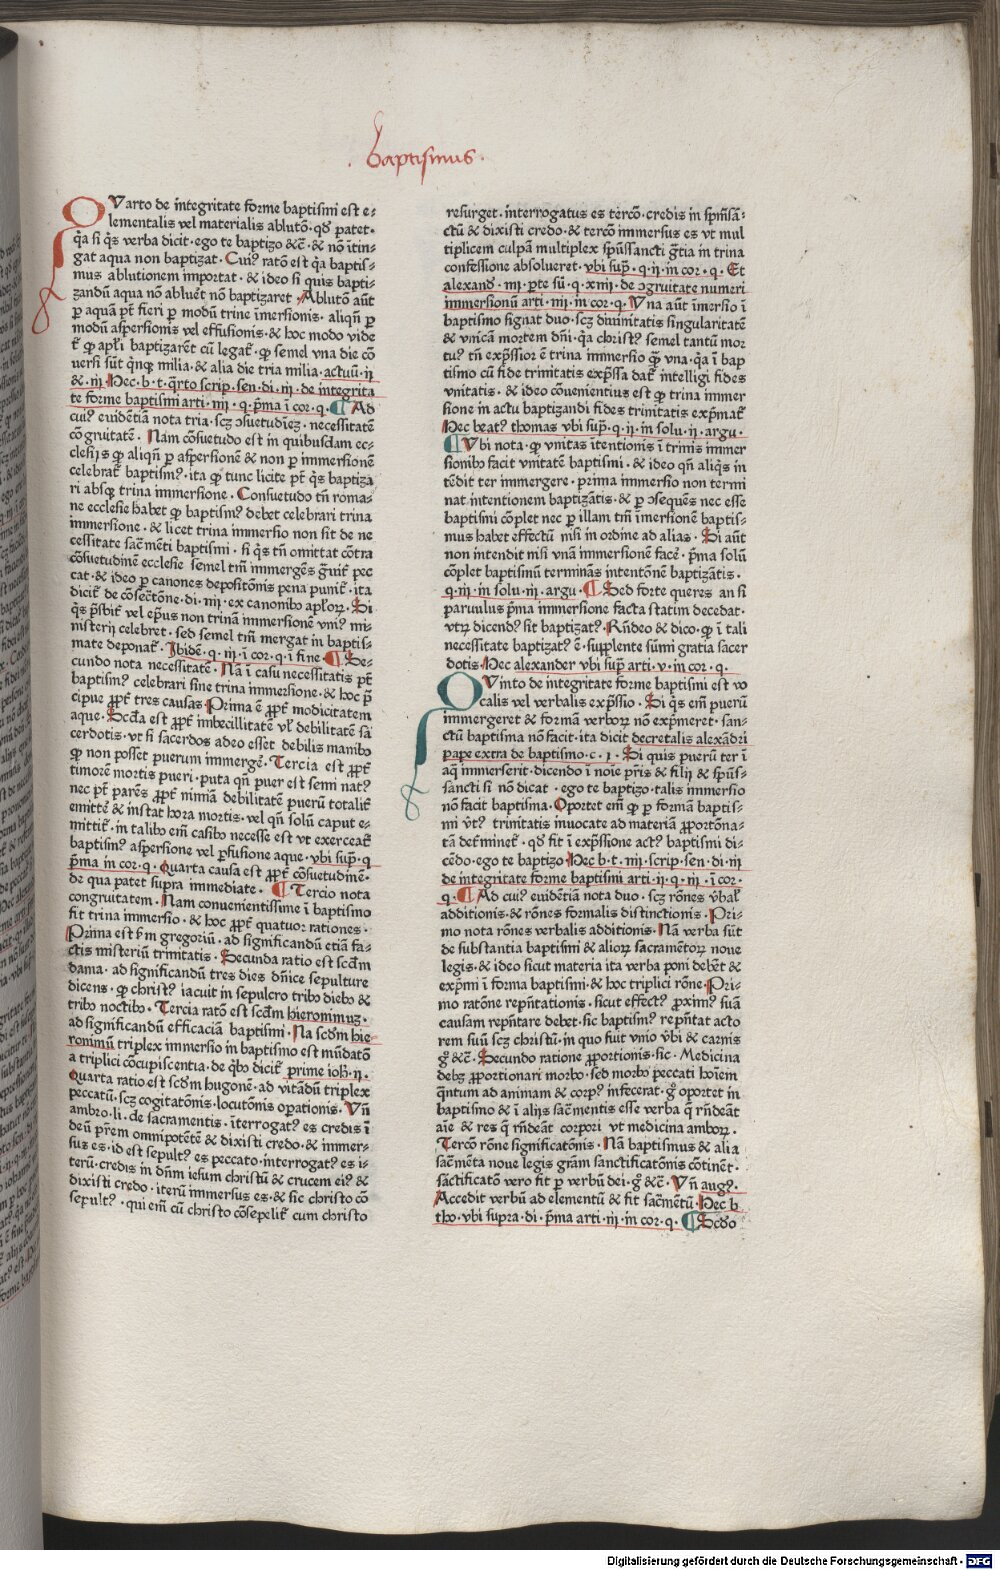 . baptismus .
QVarto de integritate forme baptismi est e-
lementalis vel materialis ablutõ. qđ patet.
q̃a si q̃s verba dicit. ego te baptizo &c̃. & nõ ĩtin-
gat aqua non baptizat. Cuiꝰ ratõ est q̃a baptis-
mus ablutionem importat. & ideo si quis bapti-
zandũ aqua nõ abluet̃ nõ baptizaret. Ablutõ aũt
ꝑ aquã pt̃ fieri ꝑ modũ trine ĩmersionis. aliqñ ꝑ
modũ aspersionis vel effusionis. & hoc modo vide
t̃ ꝙ apl̃i baptizarẽt cũ legat̃. ꝙ semel vna die cõ
uersi sũt q̃nqꝫ milia. & alia die tria milia. actuũ. ii
& .iii. Hec. b. t. q̃rto scrip. sen. di. iii. de integrita
te forme baptismi arti. iiii. q. p̃ma ĩ cor. q. ¶ Ad
cuiꝰ euidẽtiã nota tria. scꝫ ɔsuetudieꝫ. necessitatẽ
cõgruitatẽ. Nam cõsuetudo est in quibusdam ec-
clesijs ꝙ aliqñ ꝑ aspersionẽ & non ꝑ immersionẽ
celebrat̃ baptismꝰ. ita ꝙ tunc licite pt̃ q̃s baptiza
ri absqꝫ trina immersione. Consuetudo tñ roma-
ne ecclesie habet ꝙ baptismꝰ debet celebrari trina
immersione. & licet trina immersio non sit de ne
cessitate sac̃menti baptismi. si q̃s tñ omittat cõtra
cõsuetudinẽ ecclesie semel tm̃ immergẽs g̃uit̃ pec
cat. & ideo ꝑ canones depositõnis pena punit̃. ita
dicit̃ de cõsect̃one. di. iiii. ex canonibꝰ apl̃oꝝ. Si
q̃s p̃sbit̃ vel ep̃us non trinã immersionẽ vniꝰ mi-
nisterij celebret. sed semel tm̃ mergat in baptis-
mate deponat̃. Ibidẽ. q. iii. ĩ cor. q. ĩ fine. ¶ Se-
cundo nota necessitatẽ. Nã ĩ casu necessitatis pt̃
baptismꝰ celebrari sine trina immersione. & hoc p̃
cipue ꝓpt̃ tres causas. Prima ẽ ꝓpt̃ modicitatem
aque. Scd̃a est ꝓpt̃ imbecillitatẽ vl̃ debilitatẽ sa
cerdotis. vt si sacerdos adeo esset debilis manibꝰ
ꝙ non posset puerum immerge. Tercia est ꝓpt̃
timorẽ mortis pueri. puta qñ puer est semi natꝰ
nec pt̃ parẽs ꝓpt̃ nimiã debilitatẽ puerũ totalit̃
emittẽ & instat hora mortis. vel qñ solũ caput e-
mittit̃. in talibꝰ em̃ casibꝰ necesse est vt exerceat̃
baptismꝰ aspersione vel ꝑfusione aque. vbi sup̃. q
p̃ma in cor. q. Quarta causa est ꝓpt̃ cõsuetudinẽ.
de qua patet supra immediate. ¶ Tercio nota
congruitatem. Nam conuenientissime ĩ baptismo
fit trina immersio. & hoc ꝓpt̃ quatuor rationes.
Prima est s̃m gregoriũ. ad significandũ etiã fa-
ctis misteriũ trinitatis. Secunda ratio est scd̃m
dama. ad significandũ tres dies dñice sepulture
dicens. ꝙ christꝰ iacuit in sepulcro tribꝰ diebꝰ &
tribꝰ noctibꝰ. Tercia ratõ est scd̃m hieronimuꝫ.
ad significandũ efficaciã baptismi. Nã scd̃m hie-
ronimũ triplex immersio in baptismo est mũdatõ
a triplici cõcupiscentia. de q̃bꝰ dicit̃ prime ioh̃. ii.
Quarta ratio est scd̃m hugonẽ. ad vitãdũ triplex
peccatũ. scꝫ cogitatõnis. locutõnis opationis. Vñ
ambro. li. de sacramentis. ĩterrogatꝰ es credis ĩ
deũ pr̃em omnipotẽtẽ & dixisti credo. & immer-
sus es. id est sepultꝰ es peccato. interrogatꝰ es i-
terũ. credis in dñm iesum christũ & crucem eiꝰ &
dixisti credo. iterũ immersus es. & sic christo cõ
sepultꝰ. qui em̃ cũ christo cõsepelit̃ cum christo
resurget. interrogatus es tercõ. credis in sp̃m̃sã-
ctũ & dixisti credo. & tercõ immersus es vt mul
tiplicem culpã multiplex sp̃ũssancti g̃tia in trina
confessione absolueret. vbi sup̃. q. ii. in cor. q. Et
alexand̃. iiii. p̃te sũ. q. xiii. de ɔgruitate numeri
immersionũ arti. iii. in cor. q. Vna aũt ĩmersio ĩ
baptismo signat duo. scꝫ diuinitatis singularitatẽ
& vnicã mortem dñi. q̃a christꝰ semel tantũ mor
tuꝰ. tñ exp̃ssior ẽ trina immersio q̃ vna. q̃a ĩ bap
tismo cũ fide trinitatis exp̃ssa dat̃ intelligi fides
vnitatis. & ideo cõuenientius est ꝙ trina immer
sione in actu baptizandi fides trinitatis exp̃mat̃
Hec beatꝰ thomas vbi sup̃. q. ii. in solu. ii. argu.
¶ Vbi nota. ꝙ vnitas ĩtentionis ĩ trinis immer
sionibꝰ facit vnitatẽ baptismi. & ideo qñ aliq̃s in
tẽdit ter immergere. prima immersio non termi
nat intentionem baptizãtis. & ꝑ ɔsequẽs nec esse
baptismi cõplet nec ꝑ illam tm̃ ĩmersionẽ baptis-
mus habet effectũ nisi in ordine ad alias. Si aũt
non intendit nisi vnã immersionẽ facẽ. p̃ma solũ
cõplet baptismũ terminãs intentõnẽ baptizãtis.
q. iii. in solu. iii. argu. ¶ Sed forte queres an si
paruulus p̃ma immersione facta statim decedat.
vtꝝ dicendꝰ sit baptizatꝰ. Rñdeo & dico. ꝙ ĩ tali
necessitate baptizatꝰ ẽ. supplente sũmi gratia sacer
dotis. Hec alexander vbi sup̃ arti. v. in cor. q.
QVinto de integritate forme baptismi est vo
calis vel verbalis exp̃ssio. Si q̃s em̃ puerũ
immergeret & formã verboꝝ nõ exp̃meret. san-
ctũ baptisma nõ facit. ita dicit decretalis alexãdri
pape extra de baptismo. c. i. Si quis puerũ ter ĩ
aq̃ immerserit. dicendo ĩ noĩe pr̃is & filij & sp̃ũs-
sancti si nõ dicat. ego te baptizo. talis immersio
nõ facit baptisma. Oportet em̃ ꝙ ꝑ formã baptis-
mi vt̃ꝰ trinitatis inuocate ad materiã ꝓportõna-
tã det̃minet̃. qđ fit ĩ exp̃ssione actꝰ baptismi di-
cẽdo. ego te baptizo. Hec b. t. iiii. scrip. sen. di. iii
de integritate forme baptismi arti. ii. q. iii. ĩ cor.
q. ¶ Ad cuiꝰ euidẽtiã nota duo. scꝫ rõnes v̾bal̃
additionis. & rõnes formalis distinctionis. Pri-
mo nota rõnes verbalis additionis. Nã verba sũt
de substantia baptismi & alioꝝ sacramẽtoꝝ noue
legis. & ideo sicut materia ita verba poni debẽt &
exp̃mi ĩ forma baptismi. & hoc triplici rõne. Pri-
mo ratõne rep̃ntationis. sicut effectꝰ ꝓximꝰ suã
causam rep̃ntare debet. sic baptismꝰ rep̃ntat acto
rem suũ scꝫ christũ. in quo fuit vnio v̾bi & carnis
g̃ &c̃. Secundo ratione ꝓportionis. sic. Medicina
debꝫ ꝓportionari morbo. sed morbꝰ peccati hoĩem
q̃ntum ad animam & corpꝰ infecerat. g̃ oportet in
baptismo & ĩ alijs sac̃mentis esse verba q̃ rñdeãt
aĩe & res q̃ rñdeãt corpori vt medicina amboꝝ.
Tercõ rõne significatõnis. Nã baptismus & alia
sac̃mẽta noue legis gr̃am sanctificatõnis cõtinẽt.
sãctificatõ vero fit ꝑ verbũ dei. g̃ &c̃. Vñ augꝰ.
Accedit verbũ ad elementũ & fit sac̃mentũ. Hec b
tho. vbi supra. di. p̃ma arti. iii. in cor. q. ¶ Scd̃o
Digitalisierung gefördert durch die Deutsche Forschungsgemeinschaft - DFG